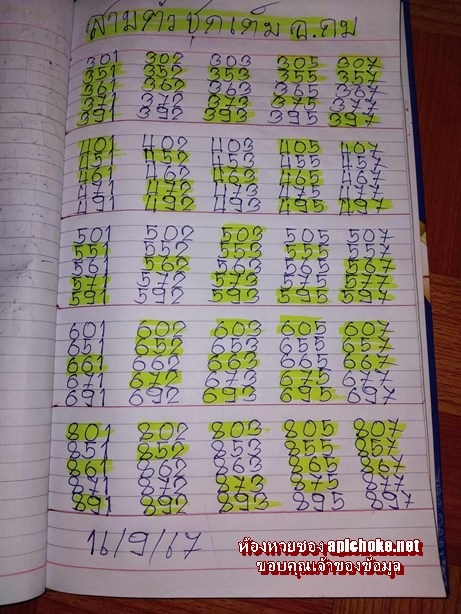 สามตัวชุดเต็ม อ.ถม
301 302 303 305 307
351 352 353 355 357
361 362 363 365 367
371 372 373 375 377
391 392 393 395 397
401 402 403 405 407
451 452 453 455 457
461 462 463 465 467
471 472 473 475 477
491 492 493 495 497
501 502 503 505 507
551 552 553 555 557
561 562 563 565 567
571 572 573 575 577
591 592 593 595 597
601 602 603 605 607
651 652 653 655 657
661 662 663 665 667
671 672 673 675 677
691 692 693 695 697
801 802 803 805 807
851 852 853 855 857
861 862 863 865 867
871 872 873 875 877
891 892 893 895 897
16/9/67
ห้องหวยซอง apichoke.net
ขอบคุณเจ้าของข้อมูล